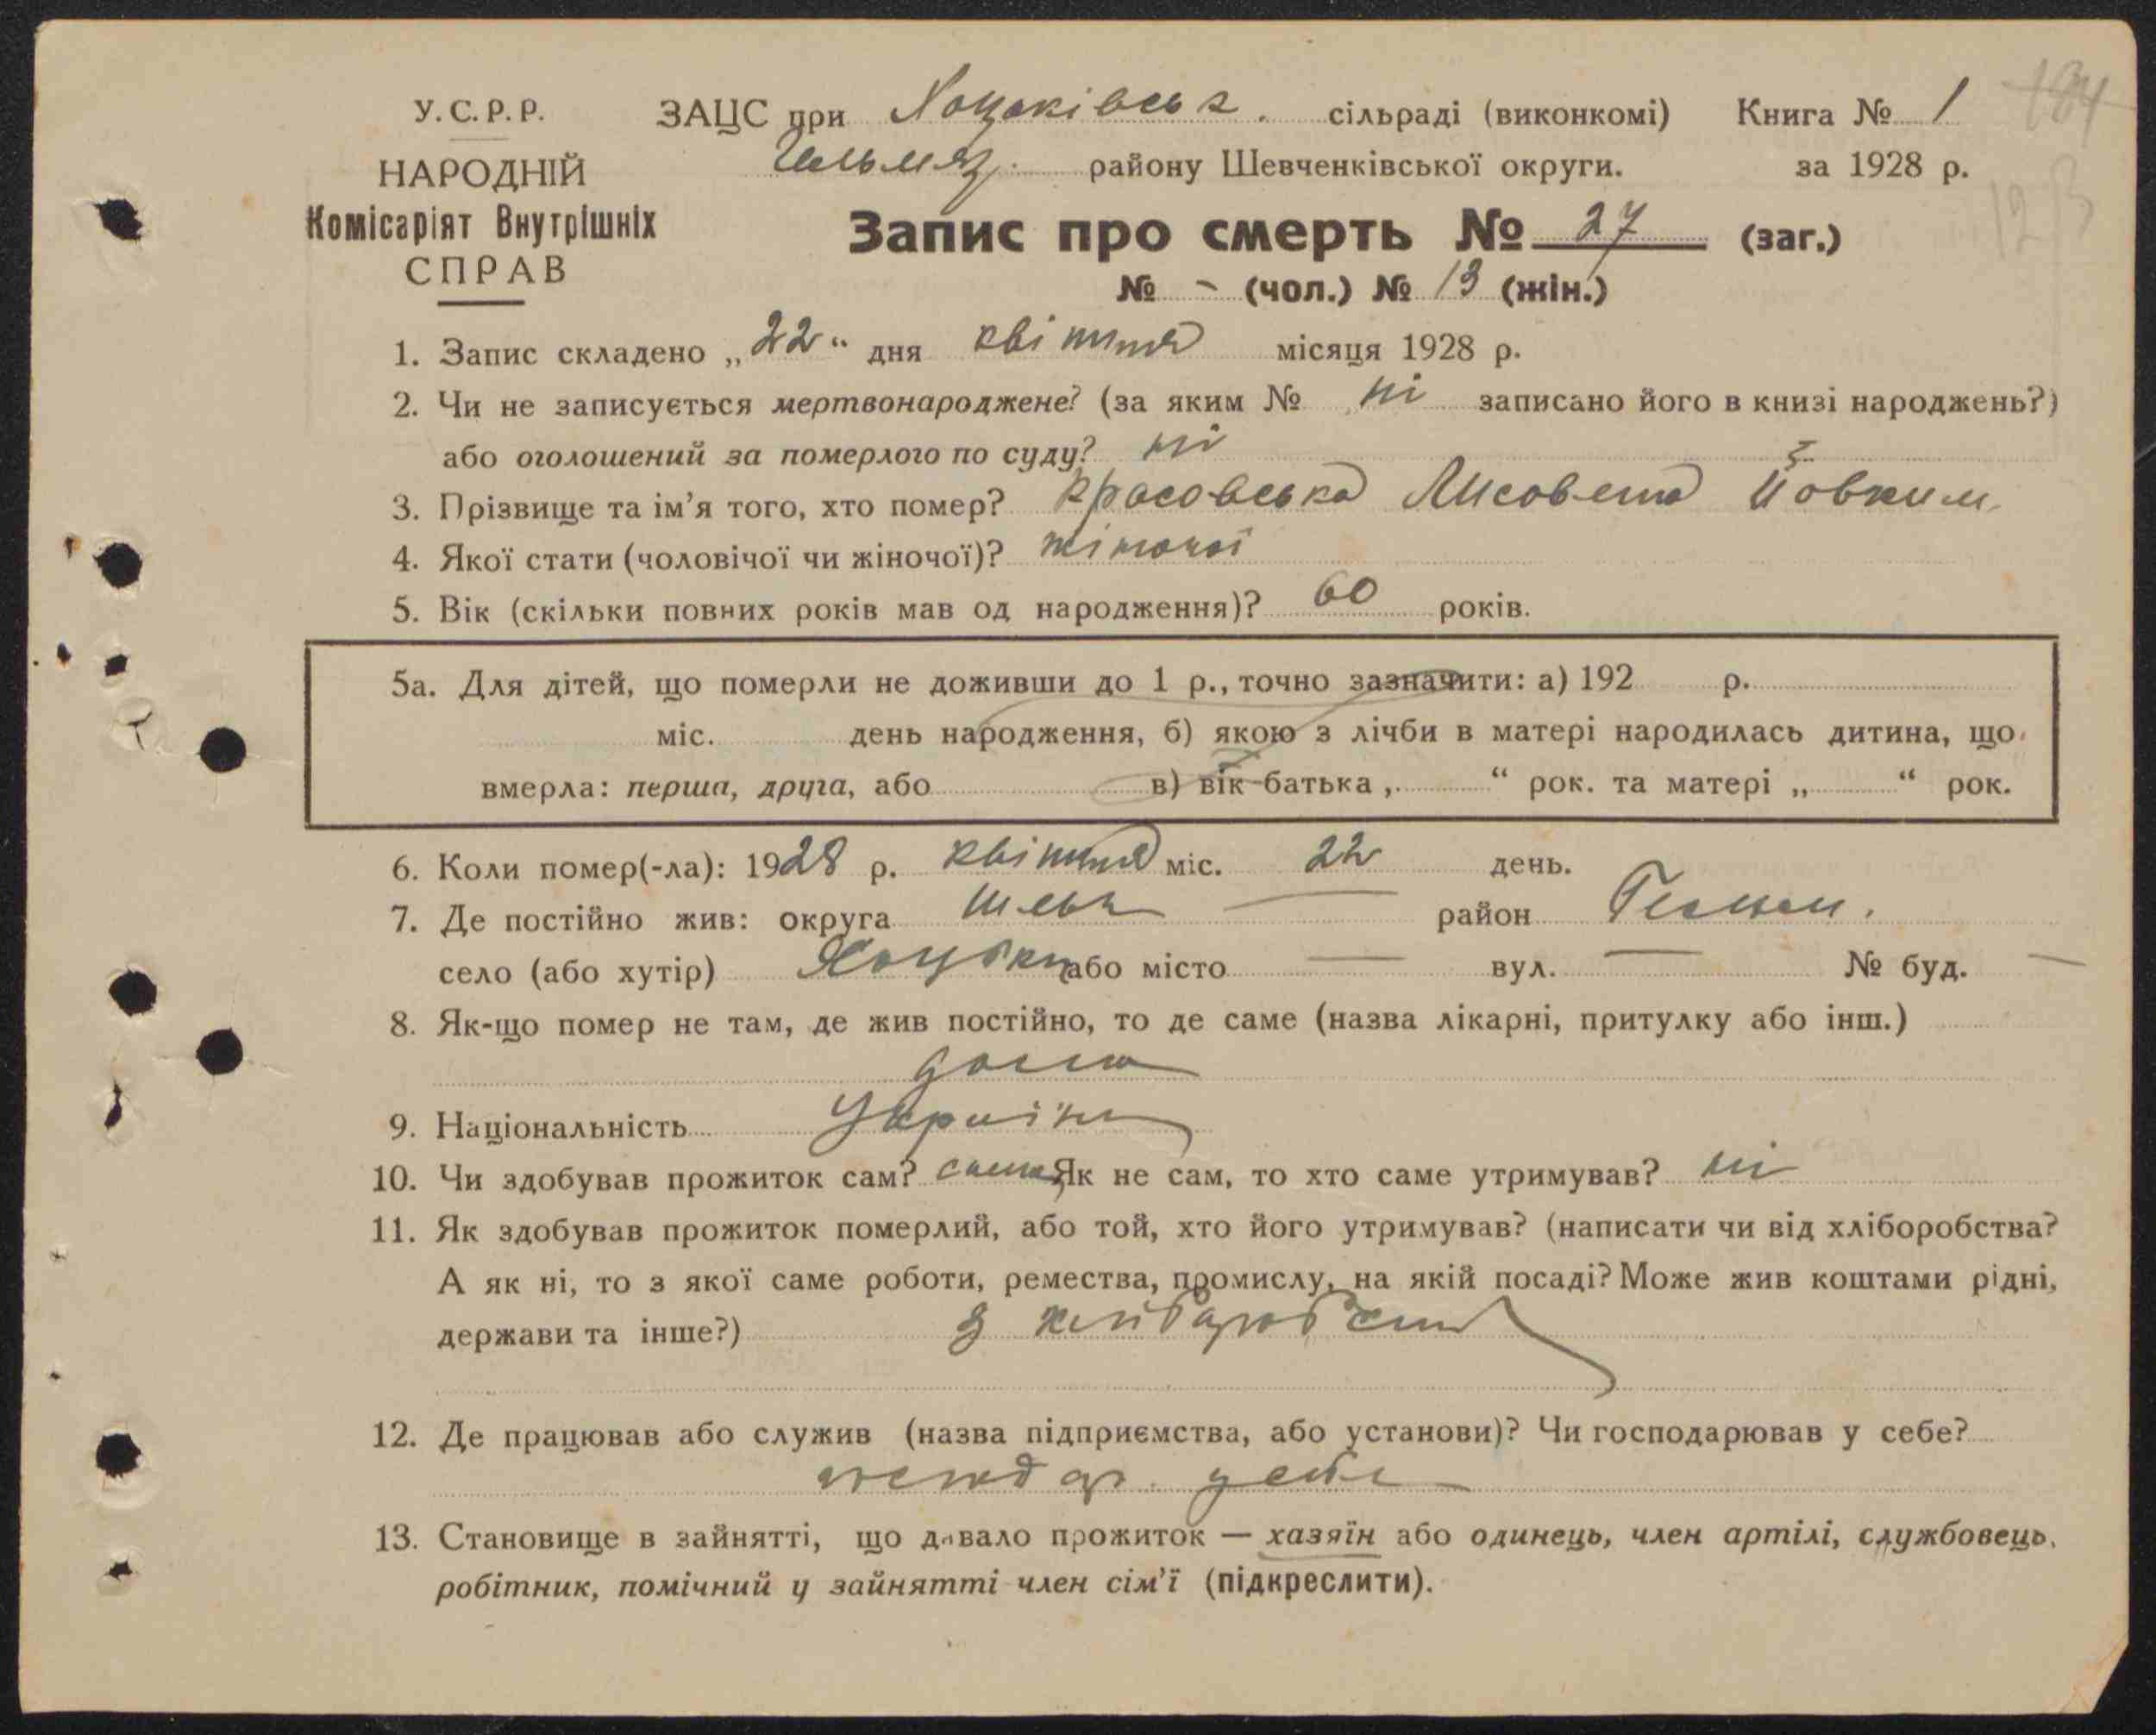 У.С.Р.Р.
НАРОДНІЙ
Комісаріят Внутрішніх
СПРАВ
ЗАЦС при Хоцьківськ. сільраді (виконкомі) Книга № 1
Гельмяз. району Шевченківської округи. за 1928 р.
Запис про смерть № 27 (заг.)
№ - (чол.) № 13 (жін.)
1. Запис складено „22" дня квітня місяця 1928 р.
2. Чи не записується мертвонароджене? (за яким № ні записано його в книзі народжень?)
або оголошений за померлого по суду? ні
3. Прізвище та ім'я того, хто помер? Красовська Лисовета Йовким.
4. Якої стати (чоловічої чи жіночої)? жіночої
5. Вік (скільки повних років мав од народження)? 60 років.
5а. Для дітей, що померли не доживши до 1 р., точно зазначити: а) 192 р.
міс. день народження, б) якою з лічби в матері народилась дитина, що
вмерла: перша, друга, або в) вік батька „ " рок. та матері „ " рок.
6. Коли помер(-ла): 1928 р. квітня міс. 22 день.
7. Де постійно жив: округа Шевч — район Гельм.
село (або хутір) Хоцьки або місто — вул. — № буд. —
8. Як-що помер не там, де жив постійно, то де саме (назва лікарні, притулку або інш.)
дома
9. Національність Україн
10. Чи здобував прожиток сам? сама Як не сам, то хто саме утримував? ні
11. Як здобував прожиток померлий, або той, хто його утримував? (написати чи від хліборобства?
А як ні, то з якої саме роботи, ремества, промислу, на якій посаді? Може жив коштами рідні,
держави та інше?) З хліборобства
12. Де працював або служив (назва підприємства, або установи)? Чи господарював у себе?
господар. у себе
13. Становище в зайнятті, що давало прожиток — хазяїн або одинець, член артілі, службовець,
робітник, помічний у зайнятті член сім'ї (підкреслити).